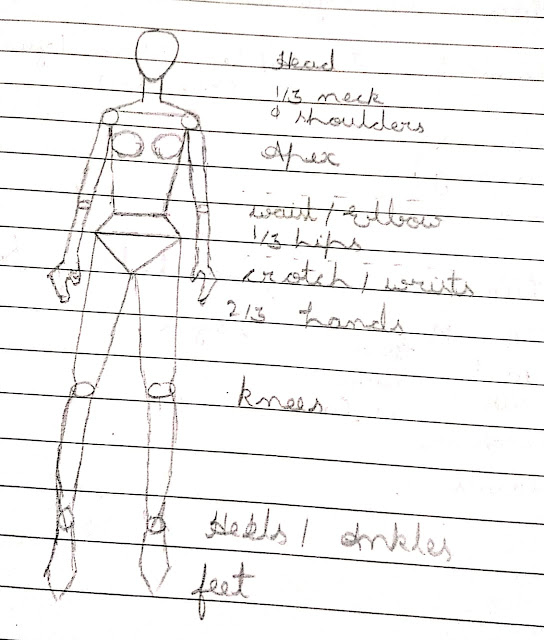 Head
1/3 neck
& shoulders
Apex
waist / Elbow
1/3 hips
crotch / wrists
2/3 hands
knees
Heels / Ankles
feet